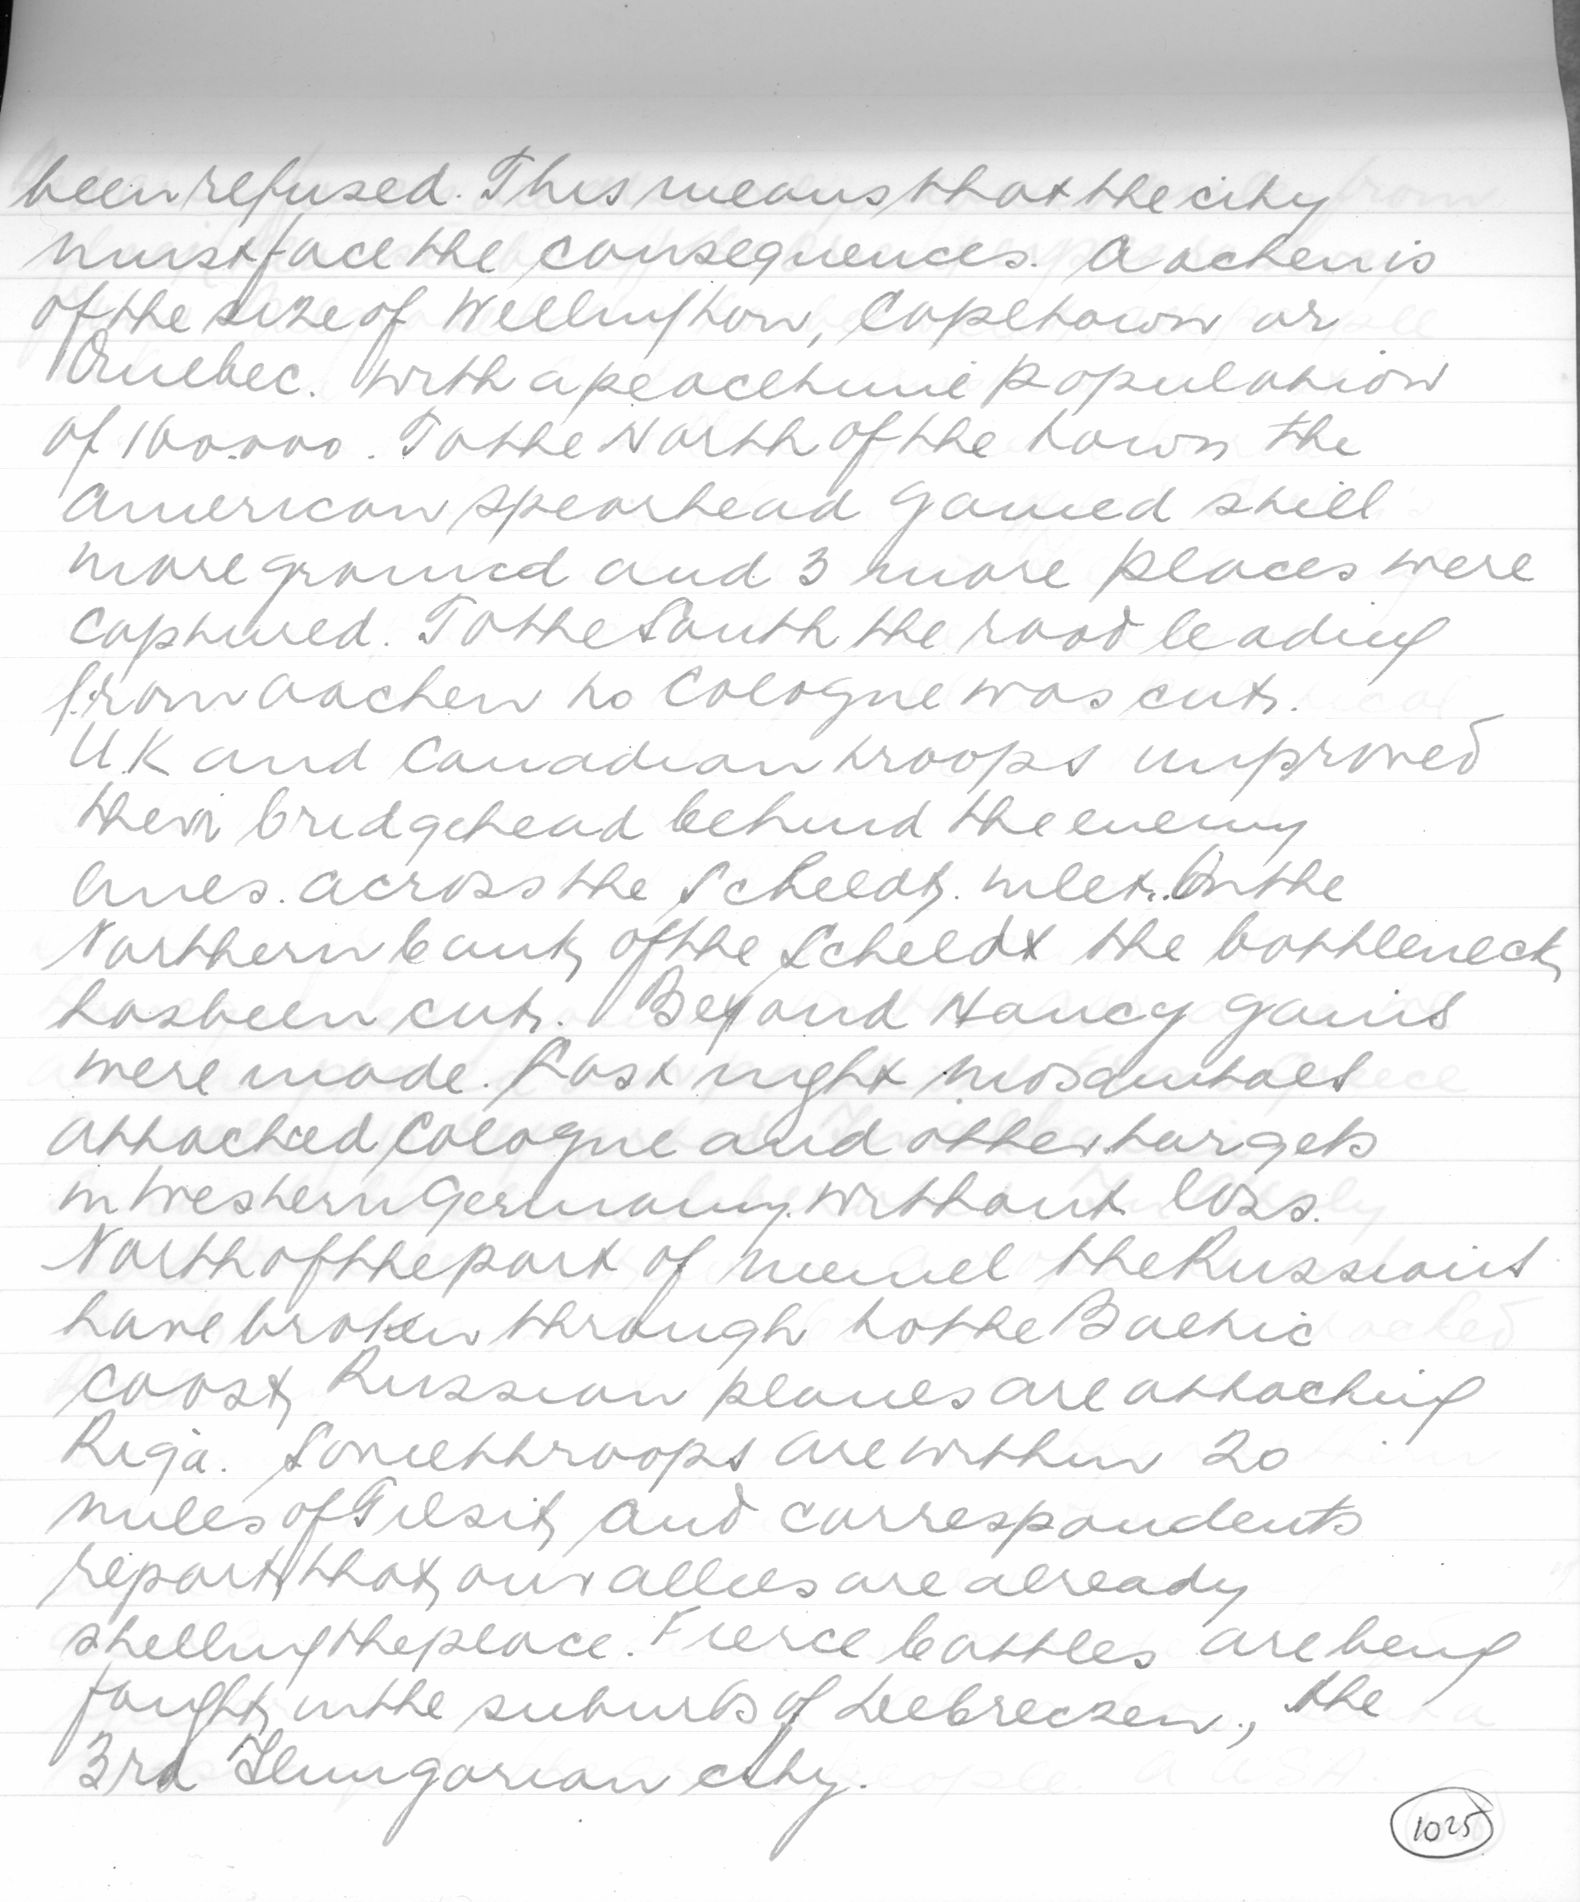 been refused. This means that the city
must face the consequences. Aachen is
of the size of Wellington, Capetown or
Quebec. With a peacetime population
of 160.000. To the North of the town the
American spearhead gained still
more ground and 3 more places were
captured. To the South the road leading
from Aachen to Cologne was cut.
UK and Canadian troops improved
their bridgehead behind the enemy
lines. across the Scheldt. inlet. On the
Northern bank of the Scheldt the bottleneck
has been cut. Beyond Nancy gains
were made. Last night Mosquitoes
attacked Cologne and other targets
in Western Germany. without loss.
North of the port of Memel the Russians
have broken through to the Baltic
coast, Russian planes are attacking
Riga. Soviet troops are within 20
miles of Tilsit, and correspondents
report, that, our allies are already
shelling the place. Fierce battles are being
fought, in the suburbs of Debreczen., the
3rd Hungarian city.
1025